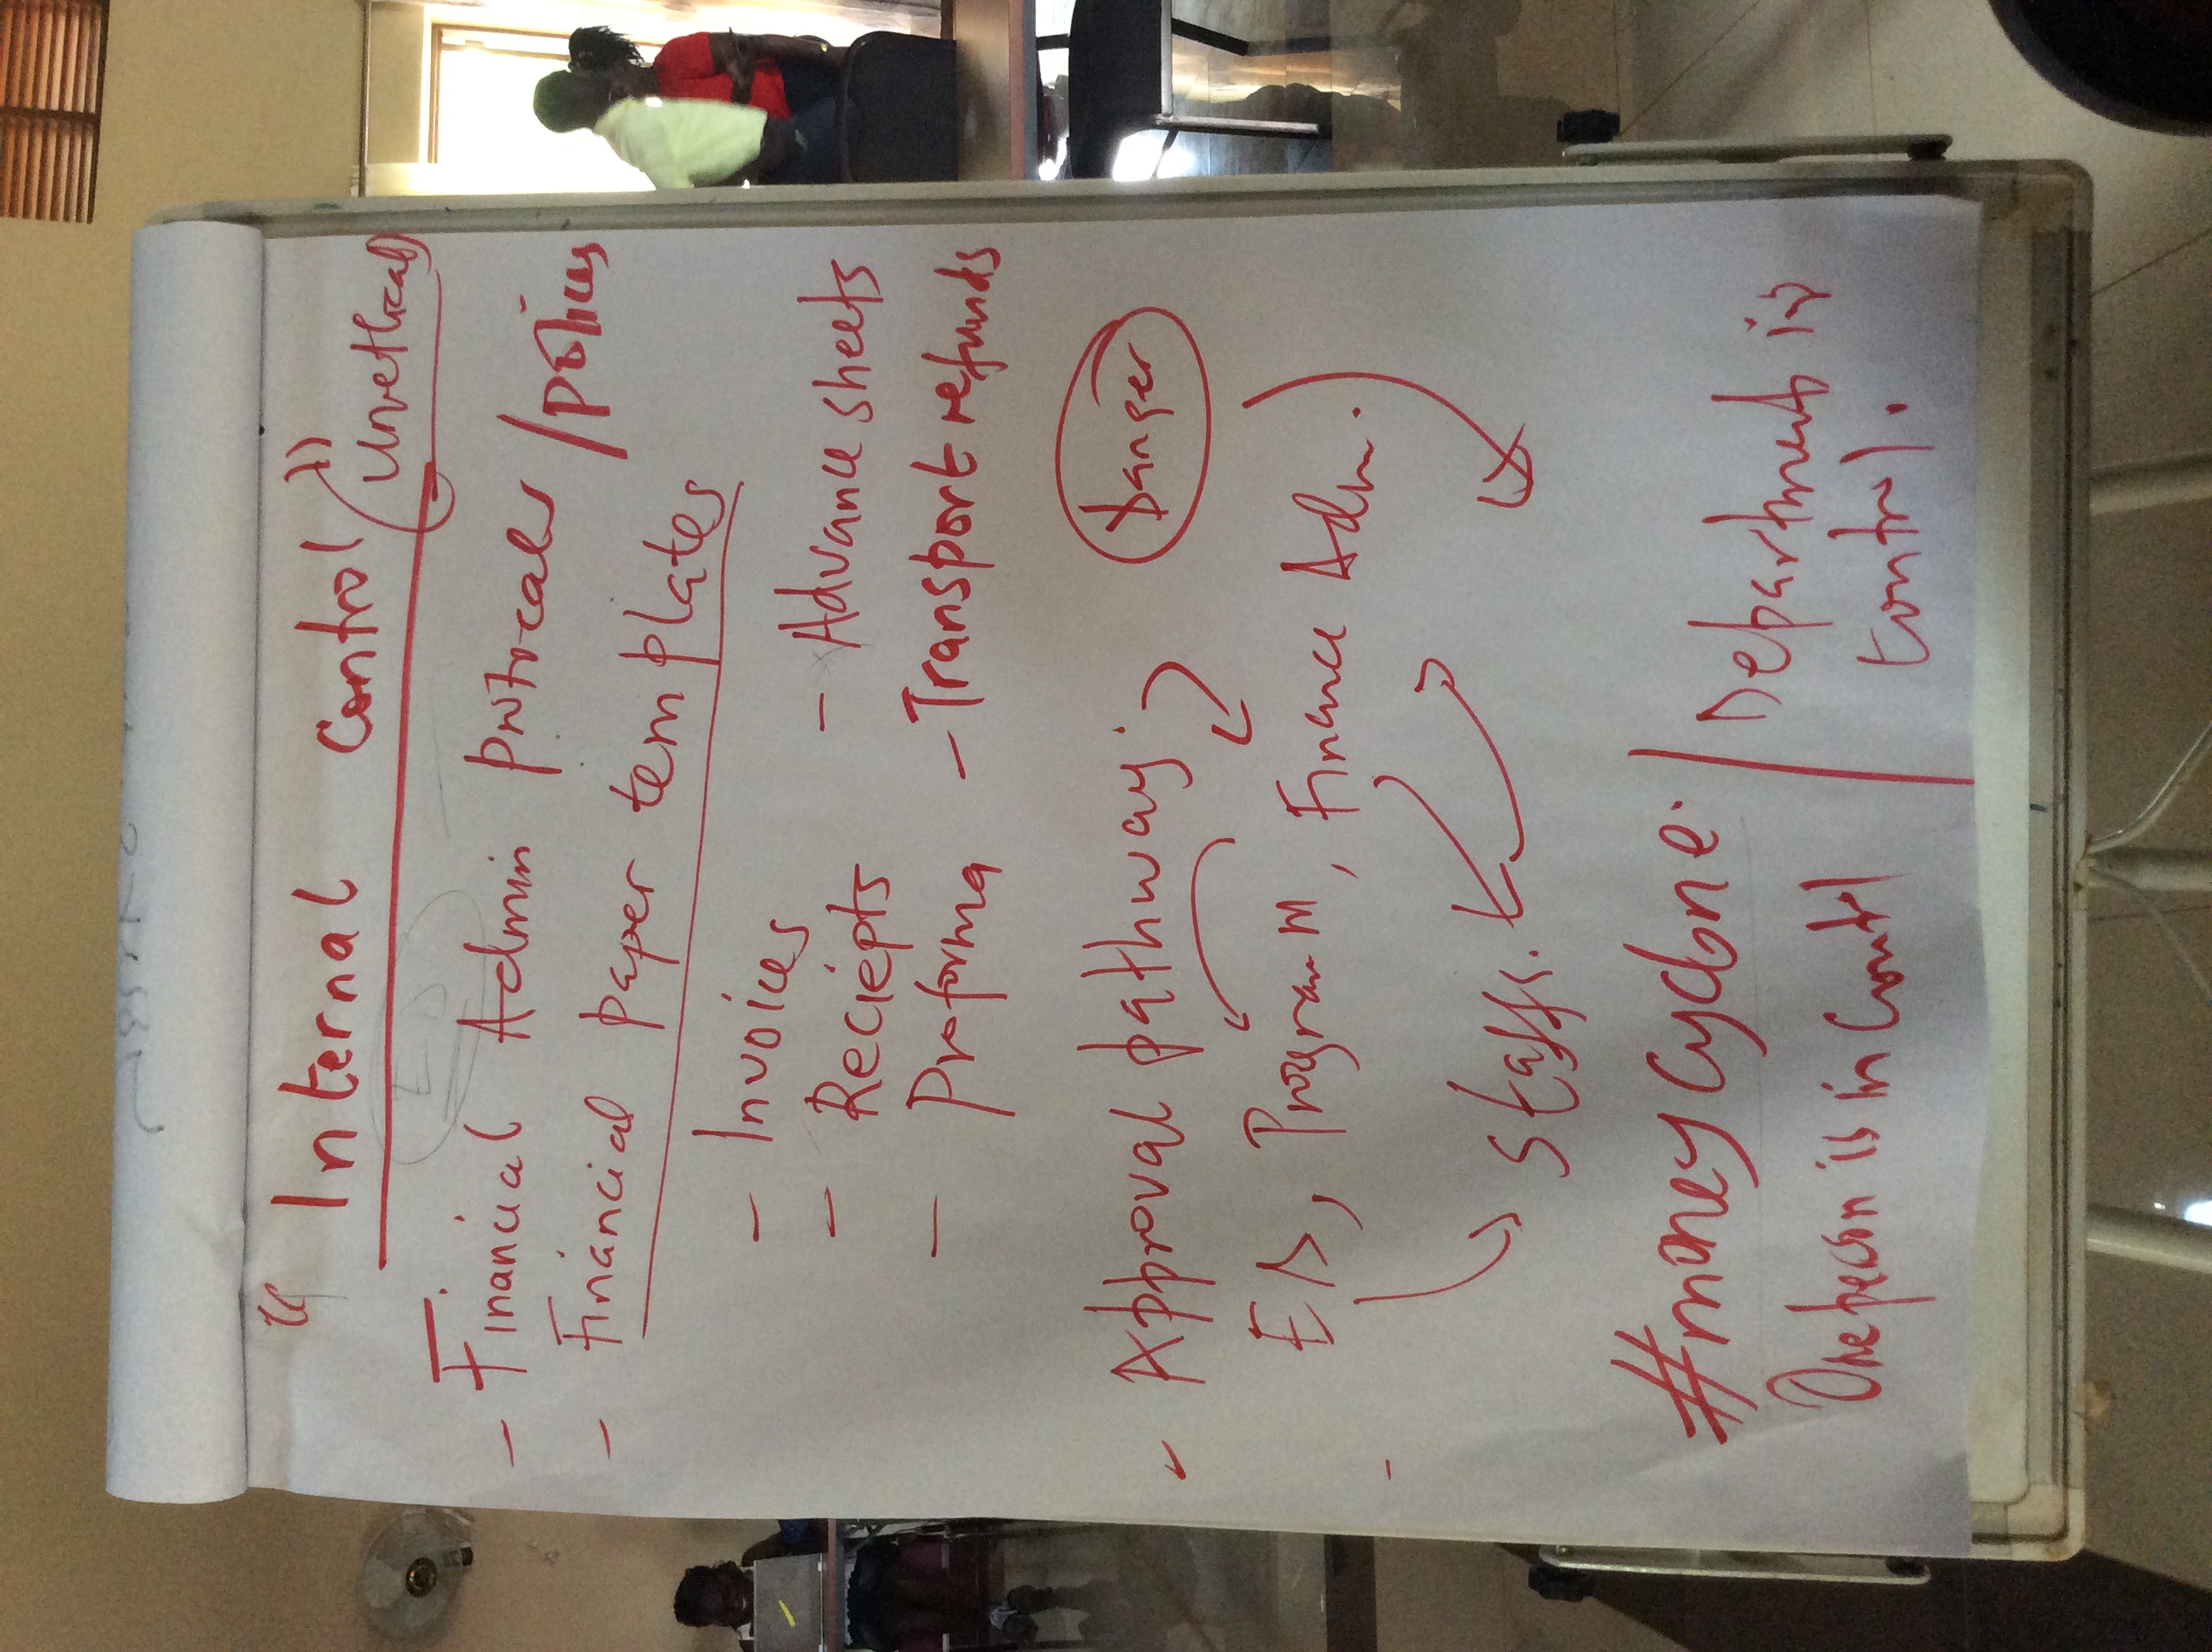 "Internal Control"
(Unethical)
ED
- Financial Admin protocals / polices
- Financial paper templates
- Invoices
- Reciepts
- Proforma
- Advance sheets
- Transport refunds
- Approval pathway.
Danger
ED, Program M, Finance Adm.
-
Staffs.
#moneyCyclone.
One person is in Control
Department is
control.